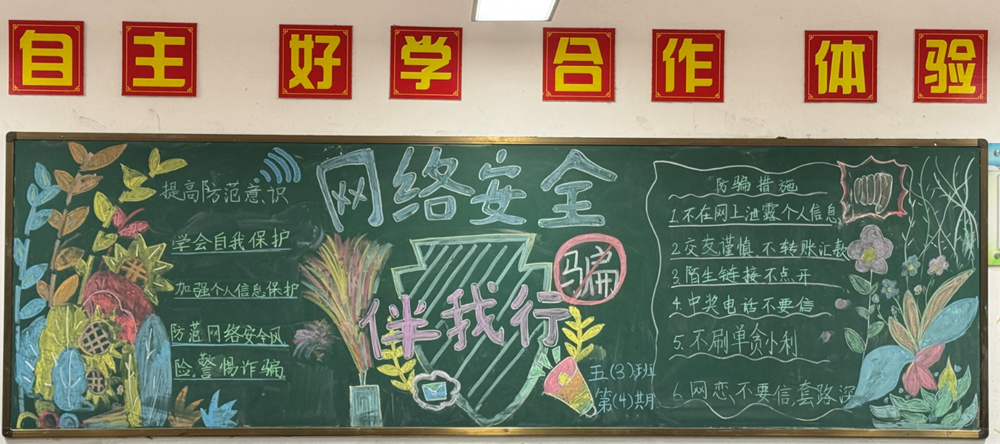 自主 好学 合作 体验
提高防范意识
学会自我保护
加强个人信息保护
防范网络安全风
险,警惕诈骗
网络安全
伴我行
骗
五(3)班
第(4)期
防骗措施
1.不在网上泄露个人信息
2.交友谨慎,不转账汇款
3.陌生链接不点开
4.中奖电话不要信
5.不刷单贪小利
6.网恋不要信,套路深